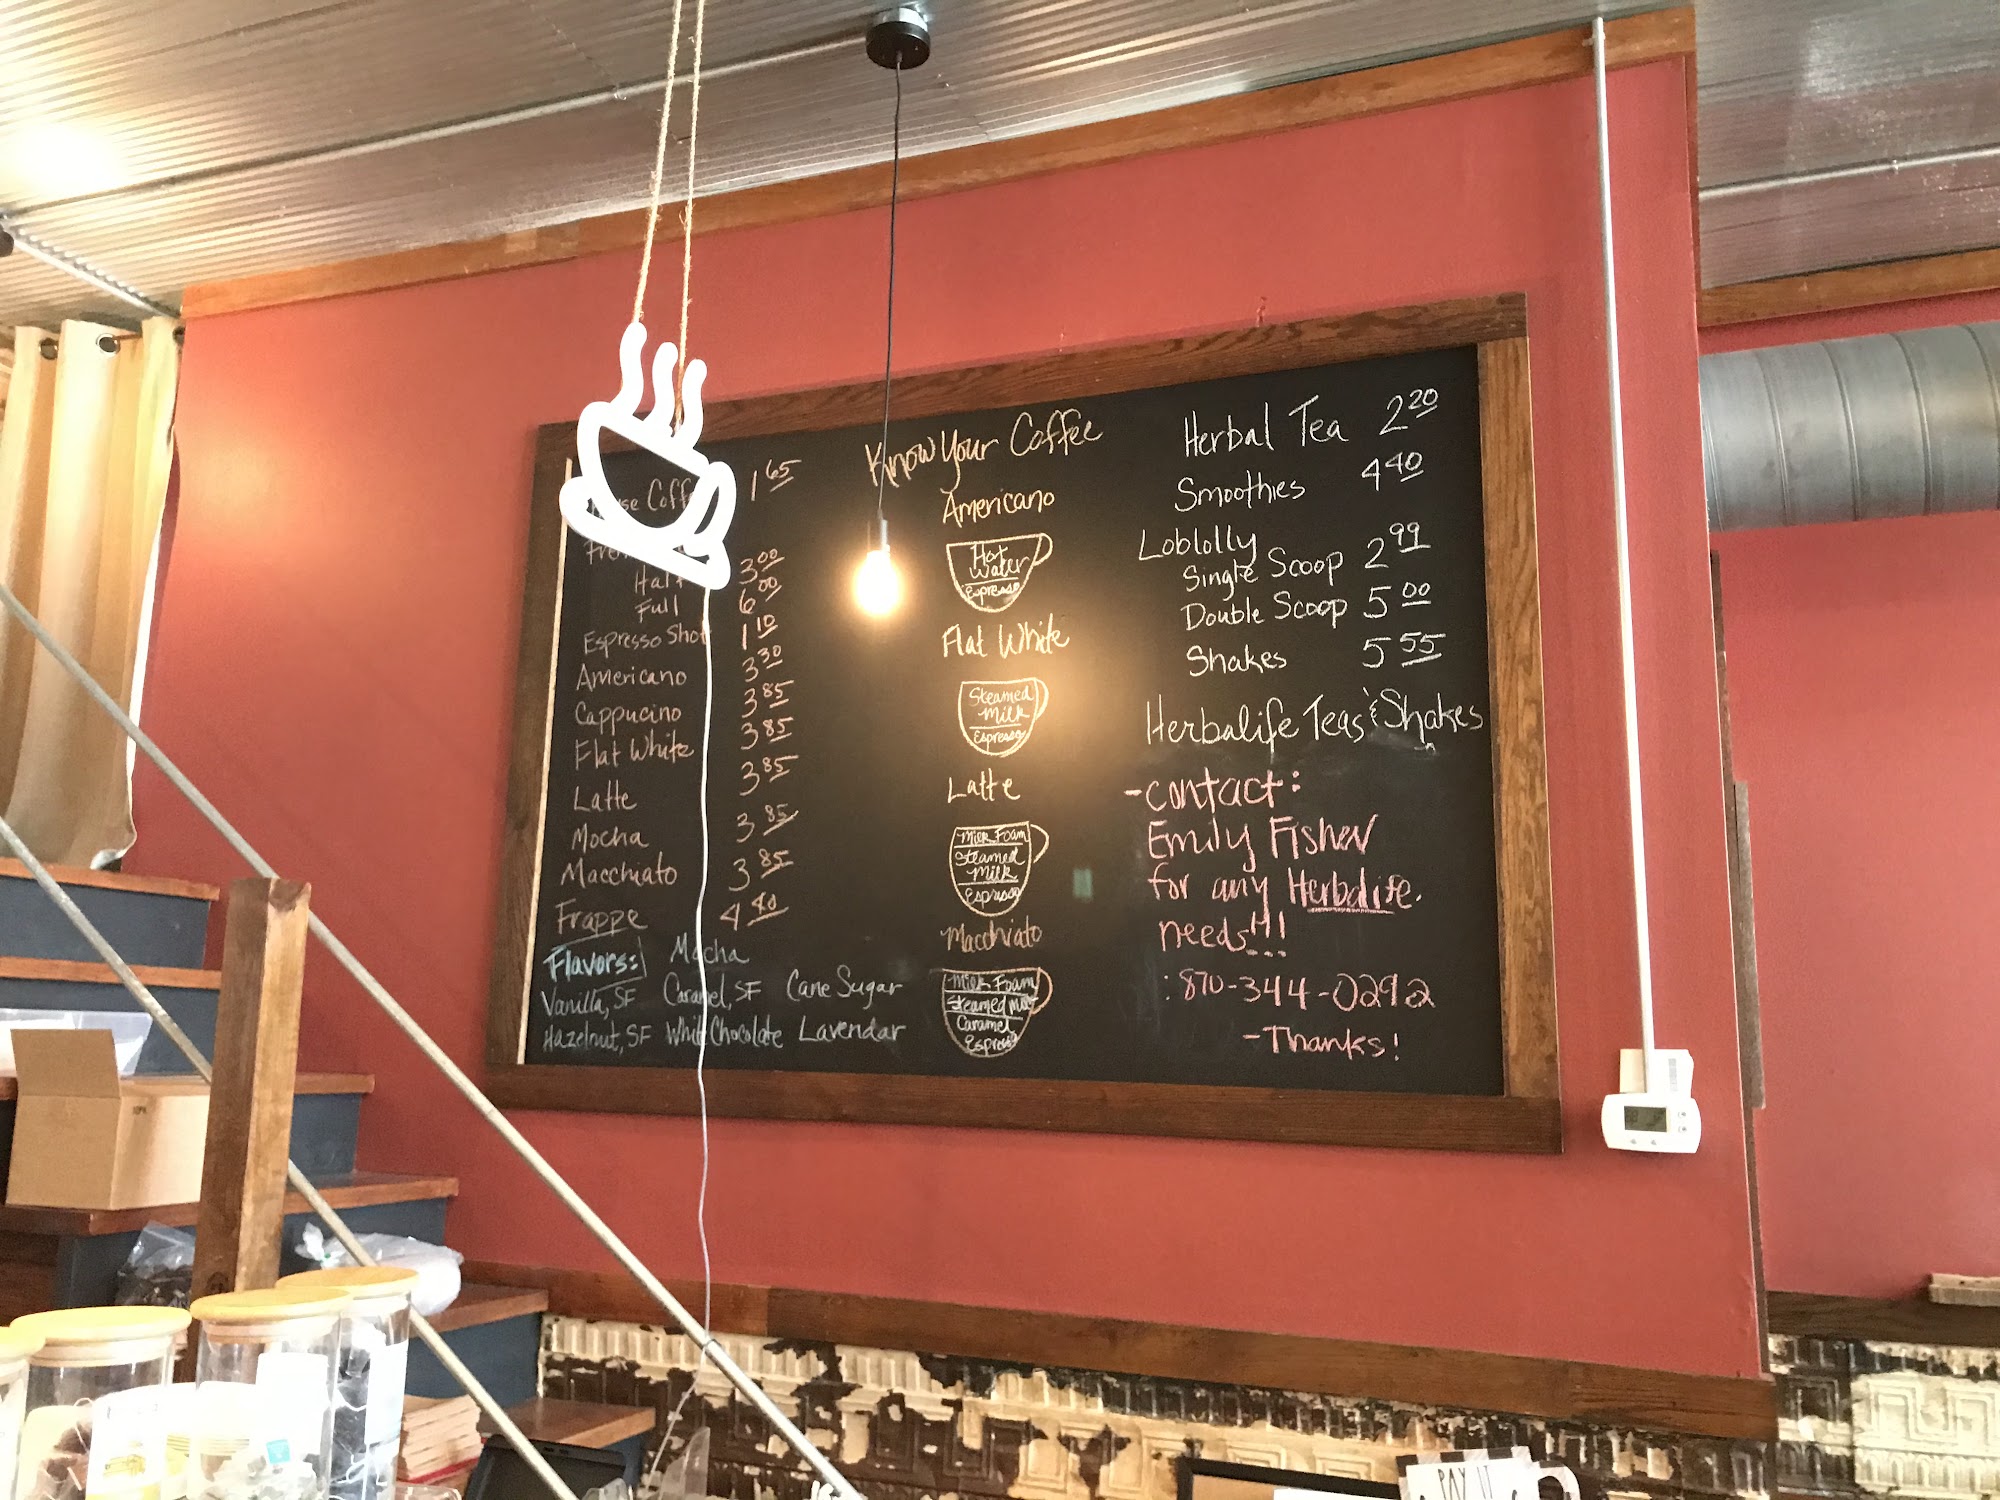 Coffee 1 65
Half 3 00
Full 6 00
Espresso Shot 1 10
Americano 3 30
Cappucino 3 85
Flat White 3 85
Latte 3 85
Mocha 3 85
Macchiato 3 85
Frappe 4 40
Flavors: Mocha
Vanilla, SF Caramel, SF Cane Sugar
Hazelnut, SF White Chocolate Lavendar
Know Your Coffee
Americano
Hot
Water
Espresso
Flat White
Steamed
Milk
Espresso
Latte
Milk Foam
Steamed
Milk
Espresso
Macchiato
Milk Foam
Steamed Milk
Caramel
Espresso
Herbal Tea 2 20
Smoothies 4 40
Loblolly
Single Scoop 2 99
Double Scoop 5 00
Shakes 5 55
Herbalife Teas & Shakes
-contact:
Emily Fisher
for any Herbalife.
needs!!!
:870-344-0292
-Thanks!
PAY IT